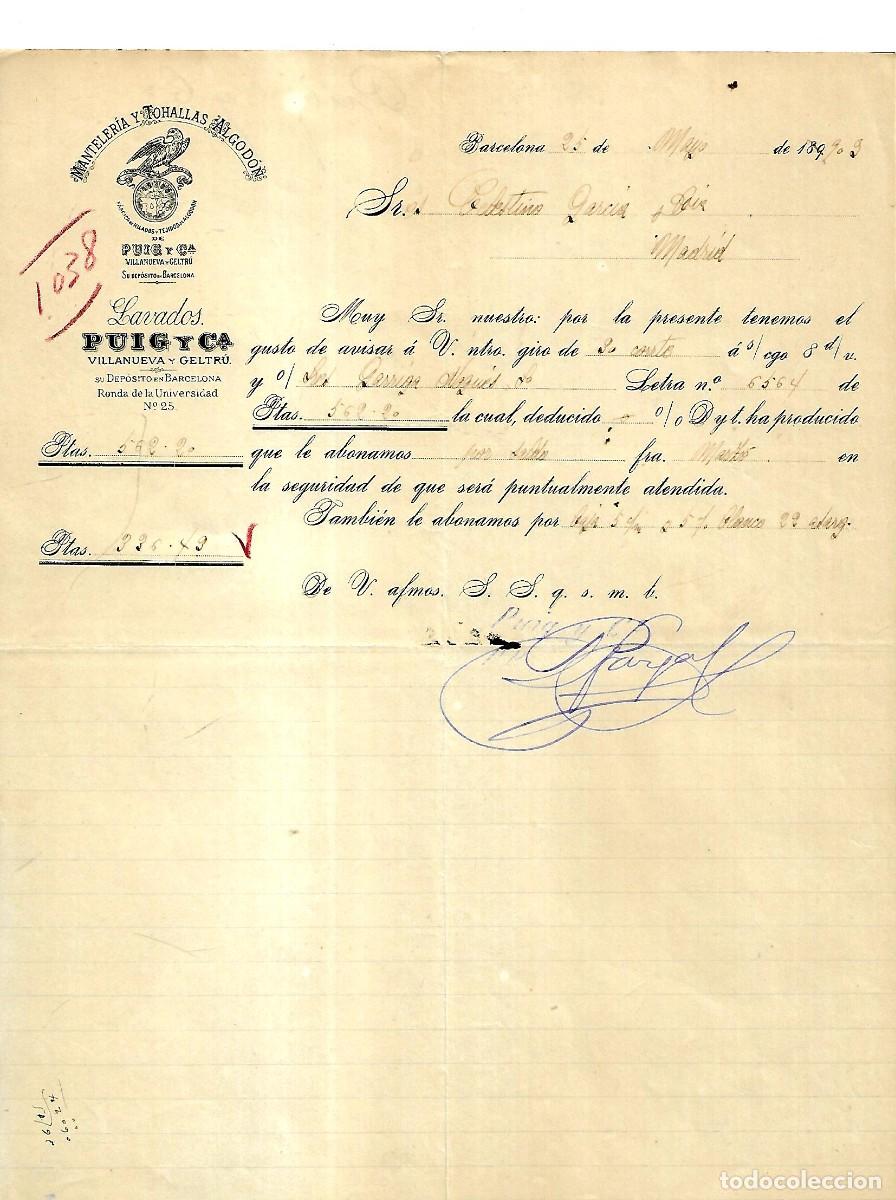 MANTELERÍA Y TOHALLAS ALGODÓN
FÁBRICA DE HILADOS Y TEJIDOS DE ALGODÓN
DE
PUIG Y Cª
VILLANUEVA Y GELTRÚ
SU DEPÓSITO EN BARCELONA
1038
Lavados.
PUIG Y Cª
VILLANUEVA Y GELTRÚ.
SU DEPÓSITO EN BARCELONA
Ronda de la Universidad
Nº 25.
Barcelona 25 de Mayo de 189 903
Sres Celestino Garcia y Cia
Madrid
Muy Sr. nuestro: por la presente tenemos el
gusto de avisar á V. ntro. giro de 20 corrte á s/ cgo 8 d/v.
y o/ Letra n.º 6564 de
Ptas. 562-20 la cual, deducido % D y t. ha producido
Ptas. 562-20 que le abonamos por saldo fra. Marzo en
la seguridad de que será puntualmente atendida.
También le abonamos por 5%
Ptas. 336-49
De V. afmos. S. S. q. s. m. b.
Puig y C
todocoleccion.net